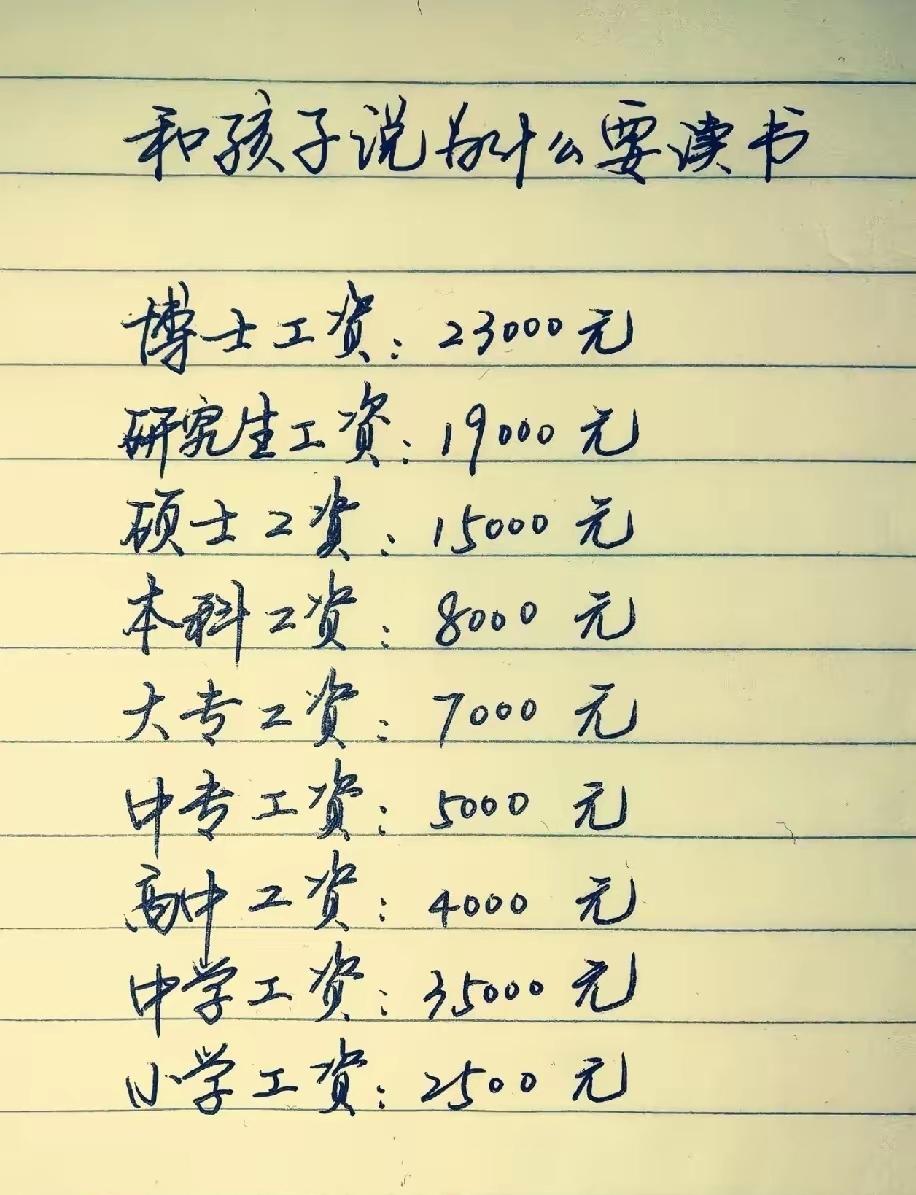 和孩子说为什么要读书
博士工资：23000元
研究生工资：19000元
硕士工资：15000元
本科工资：8000元
大专工资：7000元
中专工资：5000元
高中工资：4000元
中学工资：35000元
小学工资：2500元